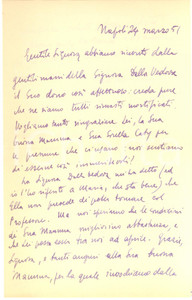 Napoli 24 marzo 51
Gentile Signora, abbiamo ricevuto dalle
gentili mani della Signora Della Vedova
il Suo dono così affettuoso: creda pure
che ne siamo tutti rimasti mortificati.
Vogliamo tanto ringraziare Lei, la Sua
buona Mamma e Sua sorella Caty per
le premure che ci usano: noi sentiamo
di esserne così immeritevoli!
La Signora Della Vedova mi ha detto (ed
io l'ho riferito a Maria, che sta bene) che
Ella non prevede di poter tornare col
Professore. Ma noi speriamo che le condizioni
di Sua Mamma migliorino abbastanza, e
che Lei possa essere tra noi ad aprile. Grazie,
Signora, e tanti auguri alla Sua buona
Mamma, per la quale invochiamo dalla